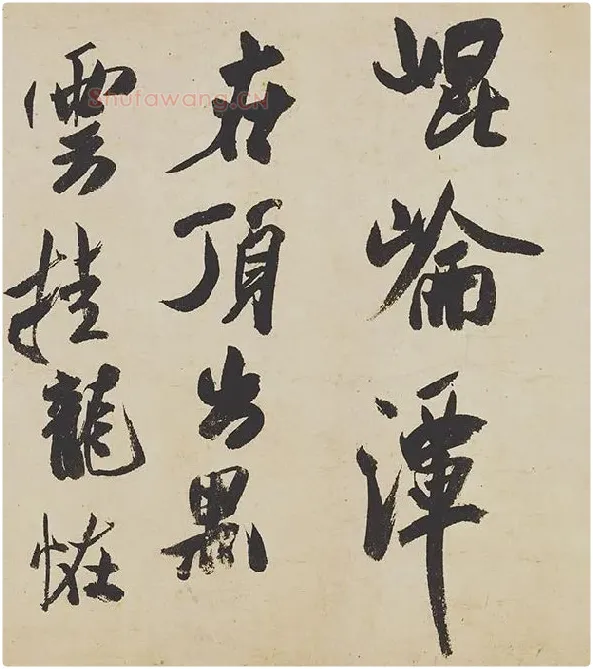 崐崘潭
在頂出黑
雲挂龍恠
Shufawang.CN